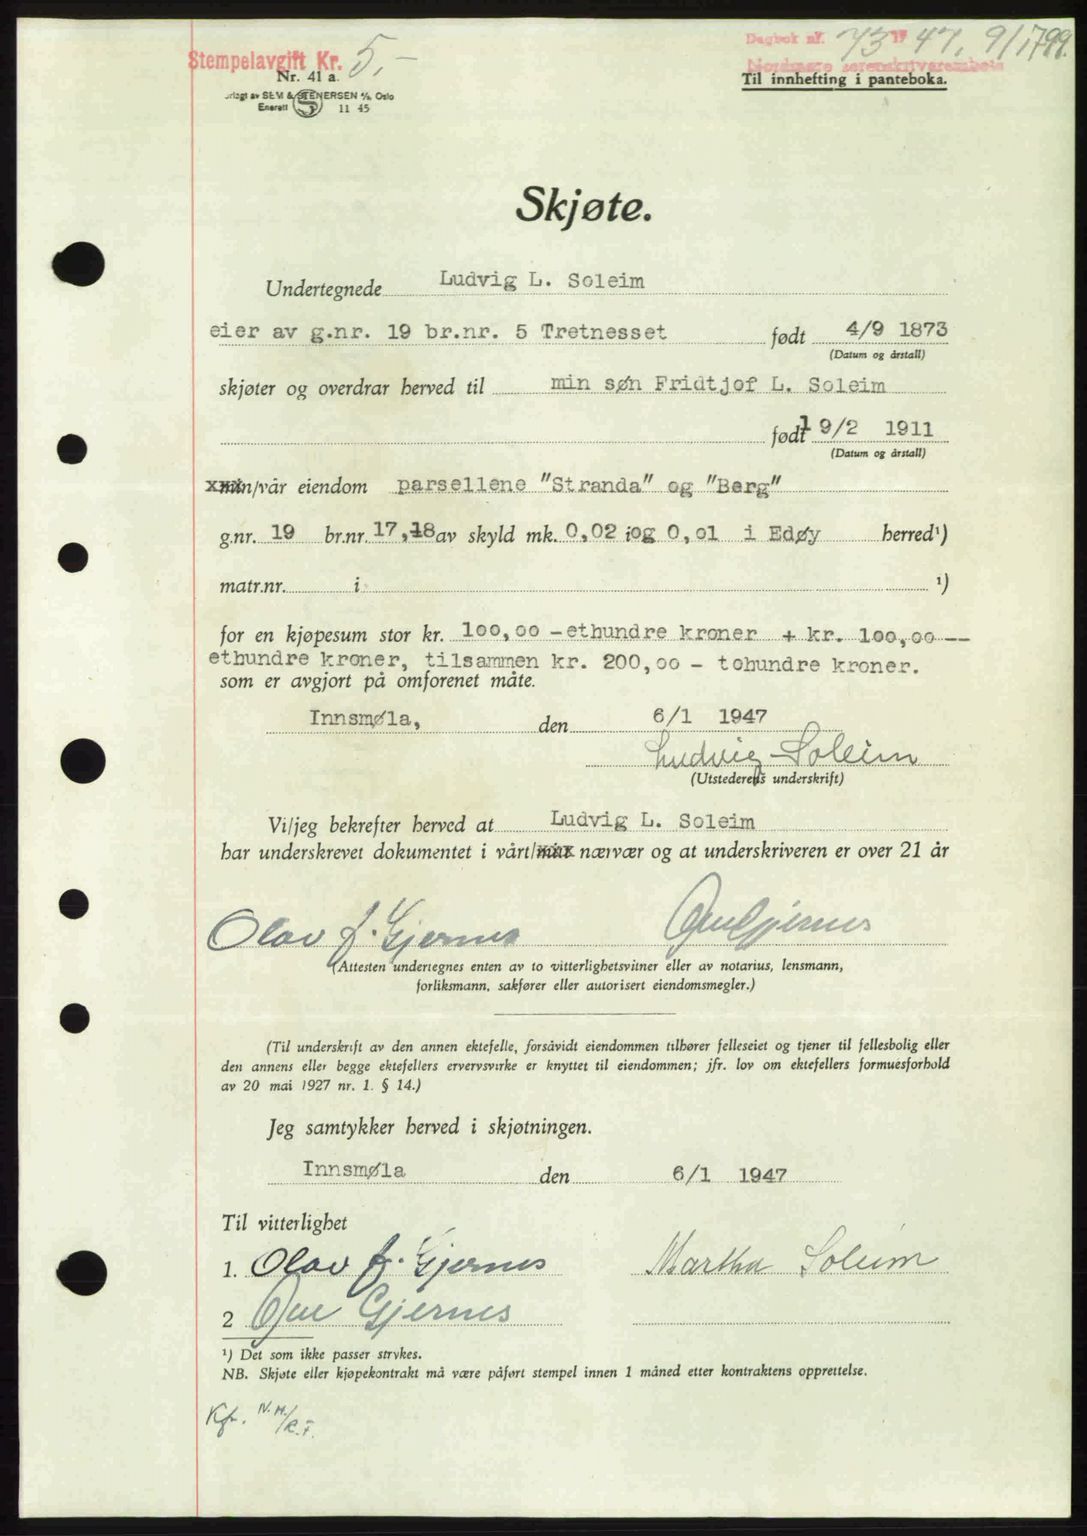 Stempelavgift Kr. 5,-
Dagbok nr. 73 19 47, 9/1 799.
Nordmøre sorenskriverembete
Nr. 41 a.
Til innhefting i panteboka.
orlagt av SEM & STENERSEN A/S, Oslo
Enerett S 11 45
Skjøte.
Undertegnede Ludvig L. Soleim
eier av g.nr. 19 br.nr. 5 Tretnesset født 4/9 1873
(Datum og årstall)
skjøter og overdrar herved til min søn Fridtjof L. Soleim
født 19/2 1911
(Datum og årstall)
xxx min/vår eiendom parsellene "Stranda" og "Berg"
g.nr. 19 br.nr. 17,18 av skyld mk. 0,02 og 0,01 i Edøy herred¹)
matr.nr. i ¹)
for en kjøpesum stor kr. 100,00 - ethundre kroner + kr. 100,00 --
ethundre kroner, tilsammen kr. 200,00 - tohundre kroner.
som er avgjort på omforenet måte.
Innsmøla, den 6/1 1947
Ludvig Soleim
(Utstederens underskrift)
Vi/jeg bekrefter herved at Ludvig L. Soleim
har underskrevet dokumentet i vårt/mitt xxx nærvær og at underskriveren er over 21 år
Olav J. Gjernes Ove Gjernes
(Attesten undertegnes enten av to vitterlighetsvitner eller av notarius, lensmann,
forliksmann, sakfører eller autorisert eiendomsmegler.)
(Til underskrift av den annen ektefelle, forsåvidt eiendommen tilhører felleseiet og tjener til fellesbolig eller
den annens eller begge ektefellers ervervsvirke er knyttet til eiendommen; jfr. lov om ektefellers formuesforhold
av 20 mai 1927 nr. 1. § 14.)
Jeg samtykker herved i skjøtningen.
Innsmøla den 6/1 1947
Til vitterlighet
1. Olav J. Gjernes Martha Soleim
2 Ove Gjernes
¹) Det som ikke passer strykes.
NB. Skjøte eller kjøpekontrakt må være påført stempel innen 1 måned etter kontraktens opprettelse.
Kfr. N.M./R.F.